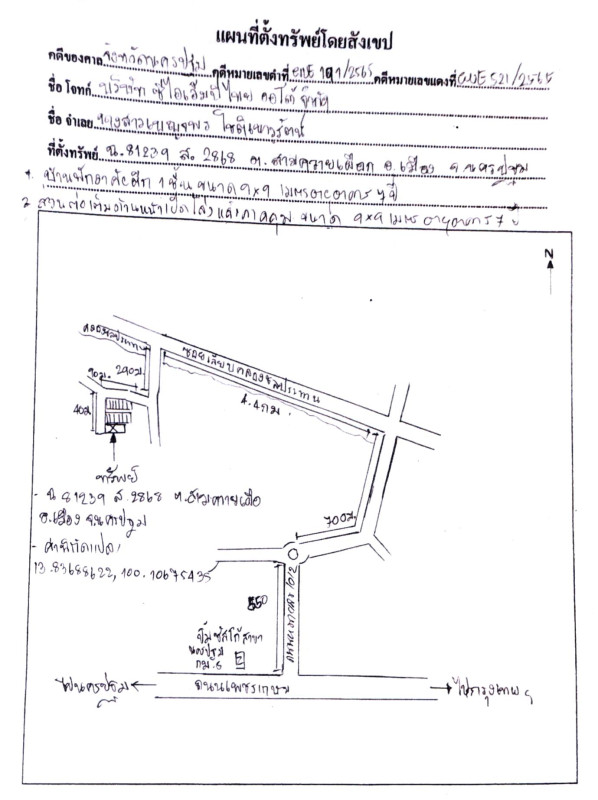 แผนที่ตั้งทรัพย์โดยสังเขป
คดีของศาล จังหวัดนครปฐม คดีหมายเลขดำที่ 191/2565 คดีหมายเลขแดงที่ 521/2565
ชื่อ โจทก์ บริษัท ซีไอเอ็มบี ไทย ออโต้ จำกัด
ชื่อ จำเลย นางสาวเบญจพร
ที่ตั้งทรัพย์ ฉ. 81239 ส. 2868 ต. สามควายเผือก อ. เมือง จ. นครปฐม
1. บ้านพักอาศัยตึก 1 ชั้น ขนาด 9x9 เมตร อายุอาคาร ปี
2. ส่วนต่อเติมด้านหน้าเปิดโล่ง ขนาด 9x9 เมตร อายุอาคาร 7 ปี
N
คลองชลประทาน
ซอยเลียบคลองชลประทาน
4.4 กม.
290ม.
90ม.
40ม.
ทรัพย์
- ฉ 81239 ส. 2868 ต. สามควายเผือ
อ. เมือง จ. นครปฐม
- ค่าพิกัดแปลง
13.83688622, 100.10675435
700ม.
550
ปั๊มซัสโก้สาขา
นครปฐม
กม. 6
ถนนเพชรเกษม
ไปนครปฐม
ไปกรุงเทพฯ